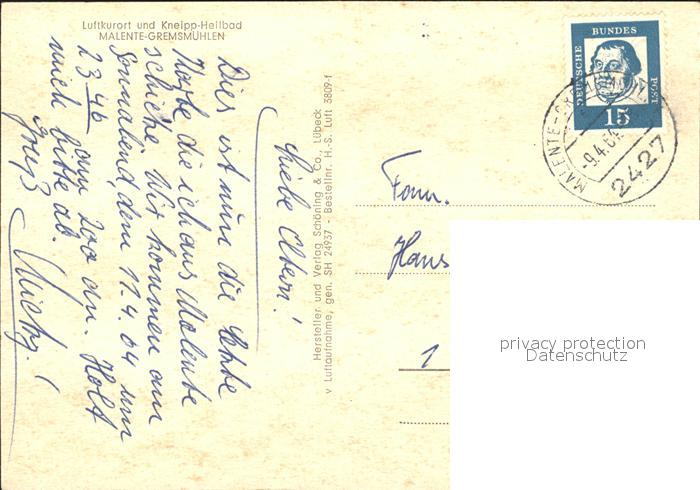 Luftkurort und Kneipp-Heilbad
MALENTE-GREMSMÜHLEN
Liebe Eltern!
Dies ist nun die letzte
Karte die ich aus Malente
schicke. Wir kommen am
Sonnabend, dem 11.4.64 um
23 46 am Zoo an. Holt
mich bitte ab.
Gruß
Hersteller und Verlag Schöning & Co., Lübeck
v Luftaufnahme, gen. SH 24937 - Bestellnr. H.-S. Luft 3809-f
DEUTSCHE BUNDES POST
15
MALENTE-GREMSMÜHLEN
-9.4.64
2427
Fam.
Hans
1
privacy protection
Datenschutz